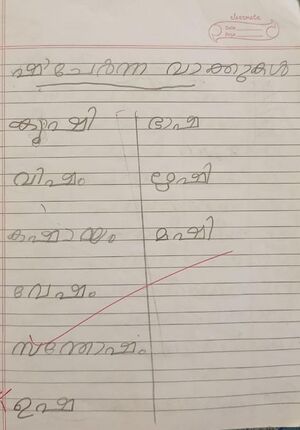 classmate
Date
Page
ഷ ചേർന്ന വാക്കുകൾ
കൃഷി ഭാഷ
വിഷം ഋഷി
കഷായം മഷി
വേഷം
സന്തോഷം
ഉഷ